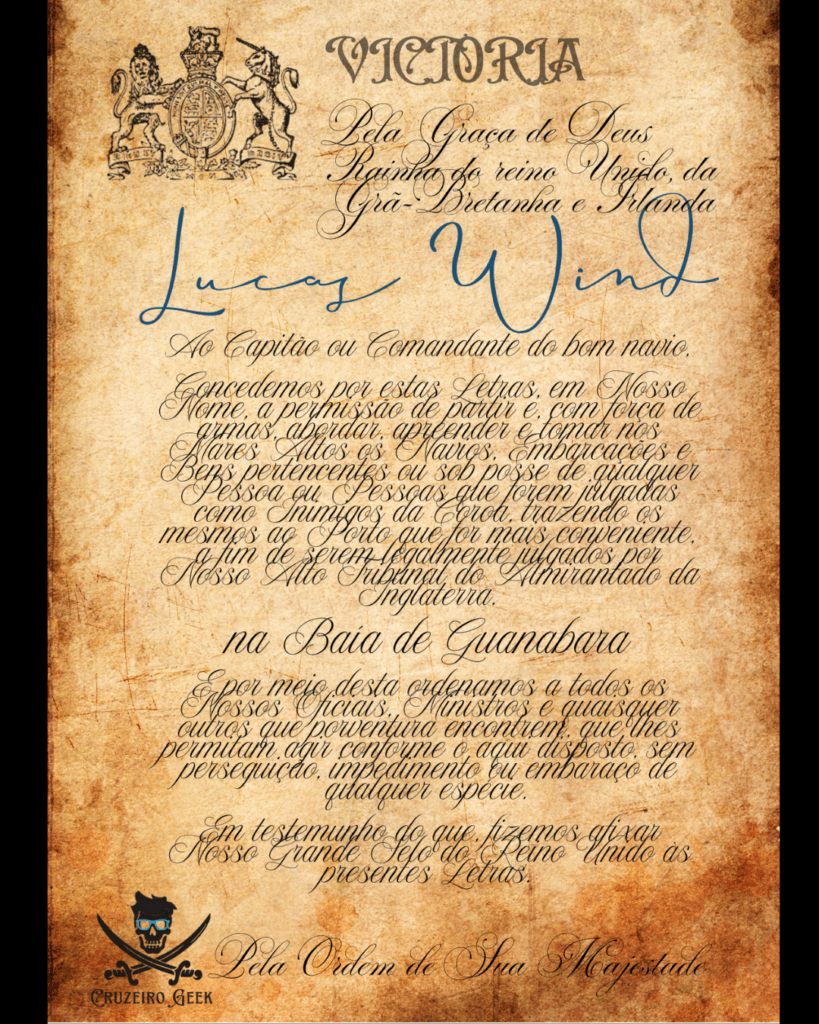 VICTORIA
Pela Graça de Deus
Rainha do reino Unido, da
Grã-Bretanha e Irlanda
Lucas Wind
Ao Capitão ou Comandante do bom navio,
Concedemos por estas Letras, em Nosso
Nome, a permissão de partir e, com força de
armas, abordar, apreender e tomar nos
Mares Altos os Navios, Embarcações e
Bens pertencentes ou sob posse de qualquer
Pessoa ou Pessoas que forem julgadas
como Inimigos da Coroa, trazendo os
mesmos ao Porto que for mais conveniente,
a fim de serem legalmente julgados por
Nosso Alto Tribunal do Almirantado da
Inglaterra.
na Baía de Guanabara
E por meio desta ordenamos a todos os
Nossos Oficiais, Ministros e quaisquer
outros que porventura encontrem, que lhes
permitam agir conforme o aqui disposto, sem
perseguição, impedimento ou embaraço de
qualquer espécie.
Em testemunho do que, fizemos afixar
Nosso Grande Selo do Reino Unido às
presentes Letras.
Pela Ordem de Sua Majestade
CRUZEIRO GEEK